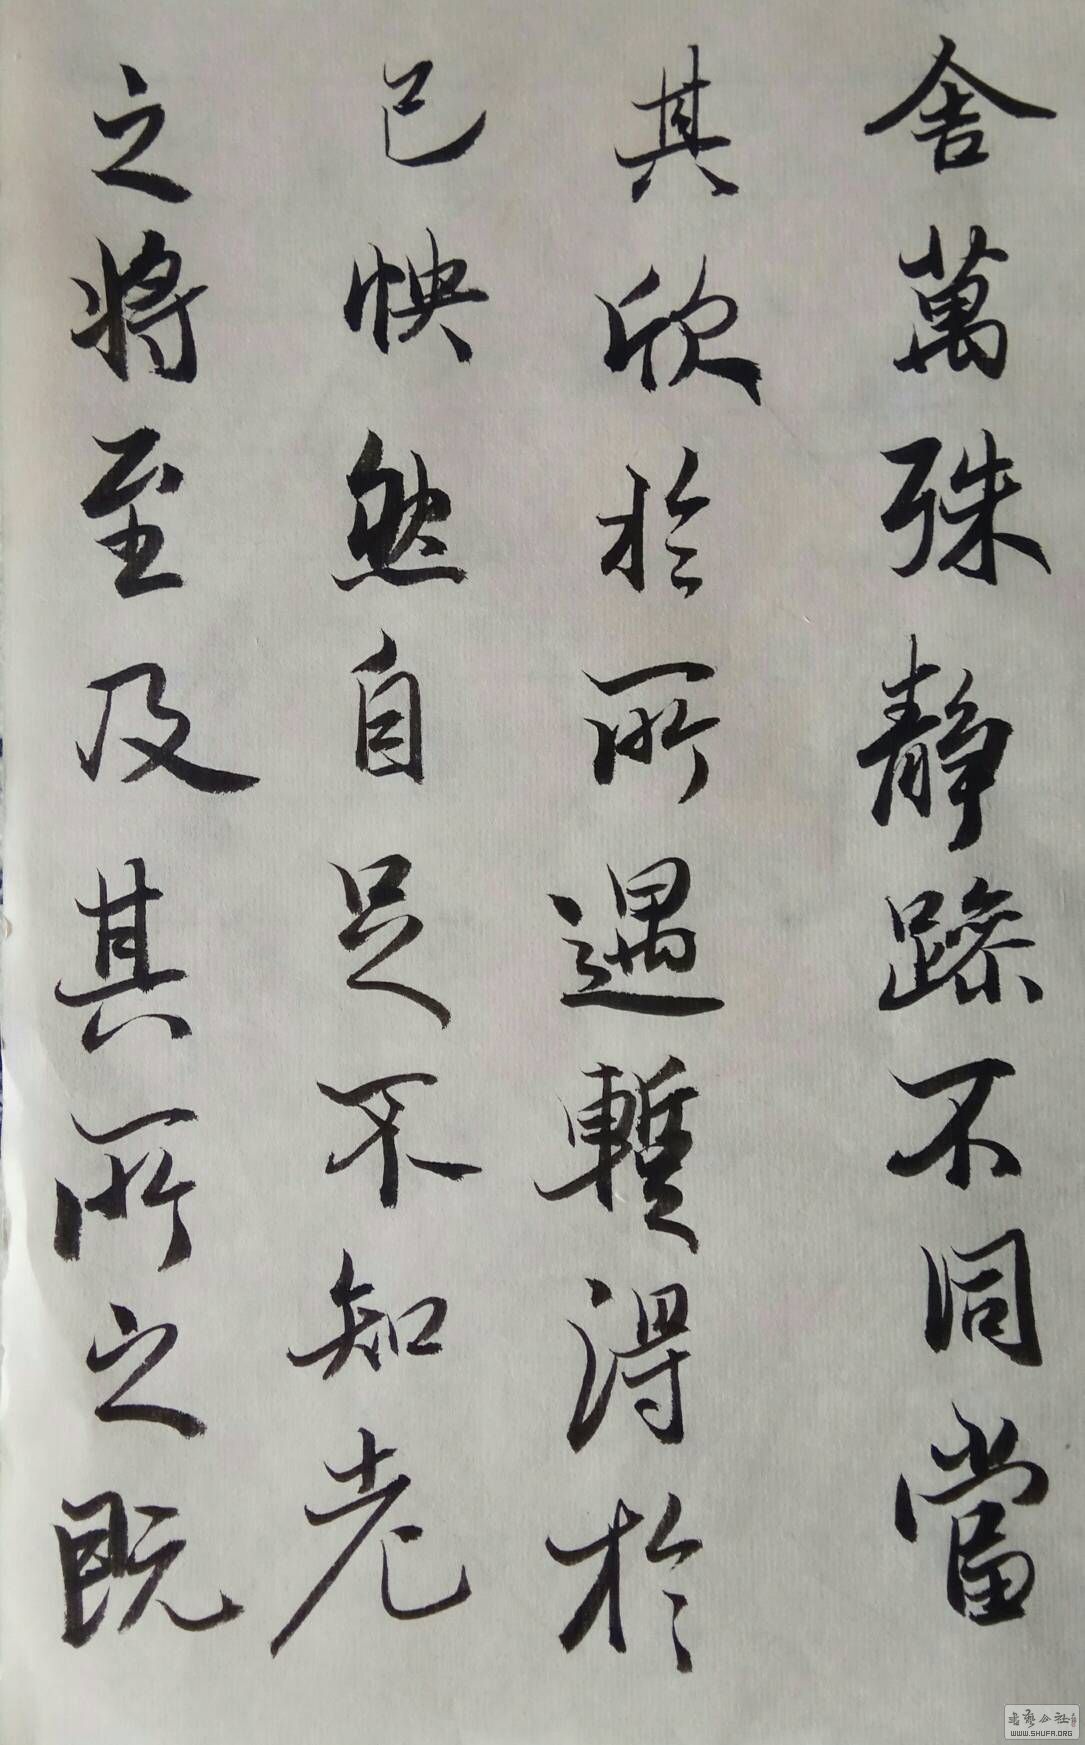 舍萬殊靜躁不同當
其欣於所遇暫得於
己怏然自足不知老
之將至及其所之既
WWW.SHUFA.ORG